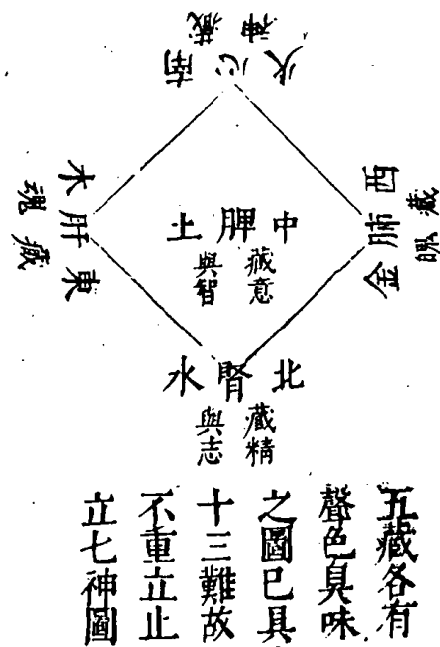 南心火
藏神
東肝木
藏魂
中脾土
藏意
與智
西肺金
藏魄
北腎水
藏精
與志
五藏各有
聲色臭味
之圖已具
十三難故
不重立止
立七神圖